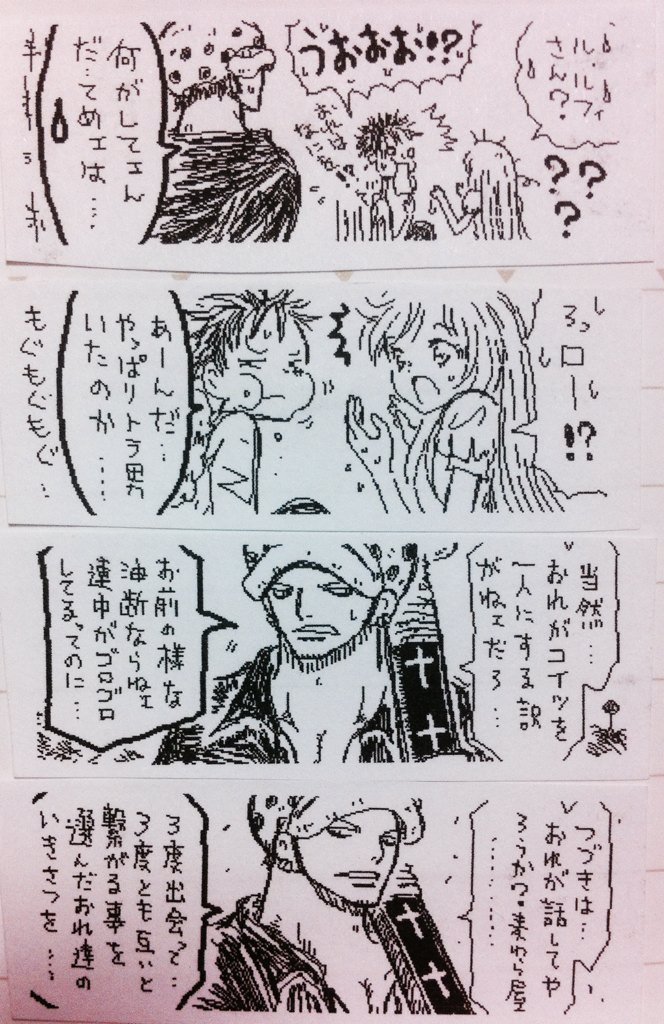 ル…ルフィ
さん?
???
うおおお!!?
何がしてェん
だ…てめェは…
ろっロー!?
あーんだ…
やっぱりトラ男
いたのか……
もぐもぐもぐ…
当然…
おれがコイツを
一人にする訳
がねェだろ…
お前の様な
油断ならねェ
連中がゴロゴロ
してるってのに…
つづきは…
おれが話してや
ろうか?麦わら屋
…………
3度出会って…
3度とも互いと
繋がる事を
選んだおれ達の
いきさつを……